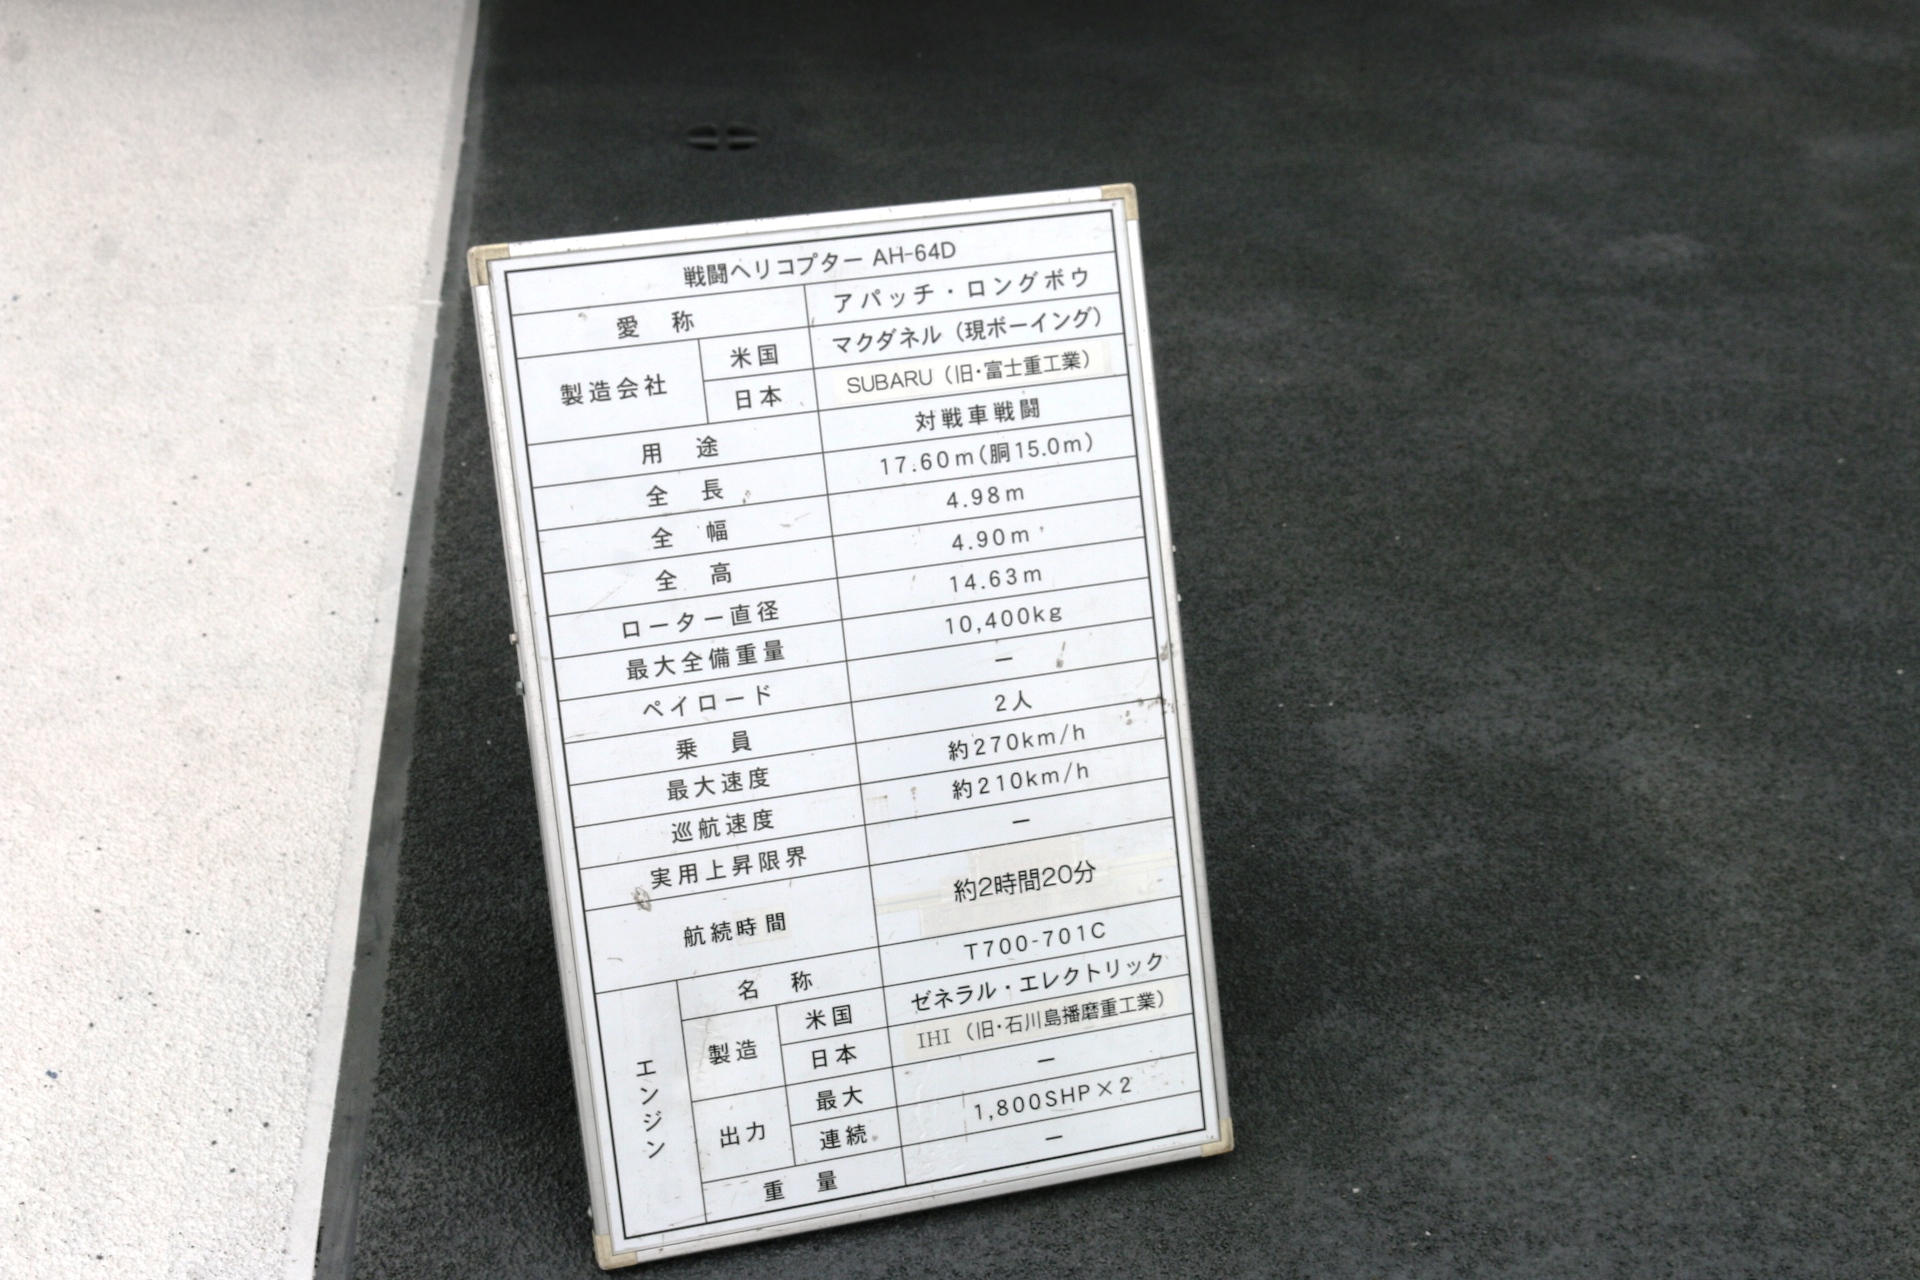 戦闘ヘリコプター AH-64D
愛 称 アパッチ・ロングボウ
製造会社 米国 マクダネル（現ボーイング）
日本 SUBARU（旧・富士重工業）
用 途 対戦車戦闘
全 長 17.60m（胴15.0m）
全 幅 4.98m
全 高 4.90m
ローター直径 14.63m
最大全備重量 10,400kg
ペイロード －
乗 員 2人
最大速度 約270km/h
巡航速度 約210km/h
実用上昇限界 －
航続時間 約2時間20分
エンジン 名 称 T700-701C
製造 米国 ゼネラル・エレクトリック
日本 IHI（旧・石川島播磨重工業）
出力 最大 －
連続 1,800SHP×2
重 量 －